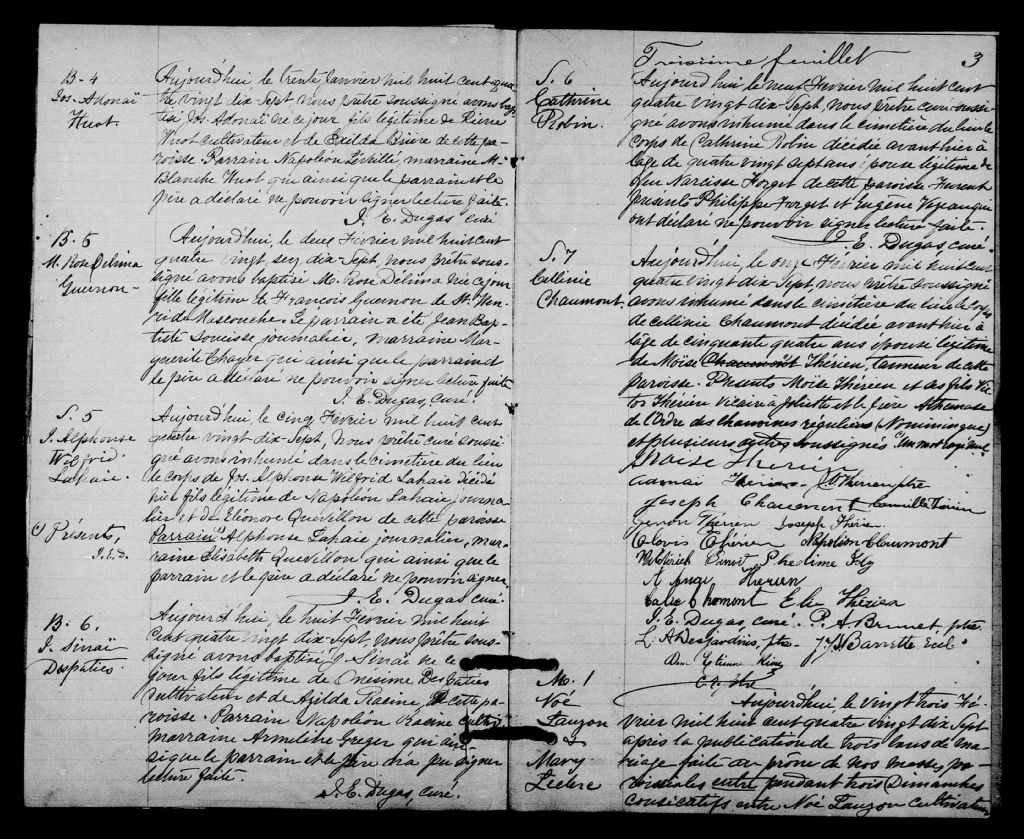 B-4
Jos. Adonaï
Huot.
Aujourd'hui, le trente Janvier mil huit cent qua-
tre vingt dix-sept nous prêtre soussigné avons bap-
tisé Jos. Adonaï né ce jour fils légitime de Pierre
Huot cultivateur et de Exilda Brière de cette pa-
roisse Parrain Napoléon Léveillé, marraine M.
Blanche Huot qui ainsi que le parrain et le
père a déclaré ne pouvoir signer lecture faite.
J. E. Dugas, curé
B-5
M. Rose Délima
Guernon-
Aujourd'hui, le deux Février mil huit cent
quatre vingt seiz dix-sept nous prêtre sous-
signé avons baptisé M. Rose Délima née ce jour
fille légitime de Francois Guernon de St. Hen-
ri de Mascouche. Le parrain a été Jean Bap-
tiste journalier, marraine Mar-
guerite qui ainsi que le parrain et
le père a déclaré ne pouvoir signer lecture faite
J. E. Dugas, curé.
S. 5
J. Alphonse
Wilfrid
Lahaie.
Présents,
J.E.D.
Aujourd'hui, le cinq Février mil huit cent
quatre vingt dix-sept, nous prêtre curé soussi-
gné avons inhumé dans le cimetière du lieu
le corps de Jos. Alphonse Wilfrid Lahaie décédé
hier fils légitime de Napoléon Lahaie journa-
lier et de Eléonore Quevillon de cette paroisse
Parrain Alphonse Lahaie journalier, mar-
raine Elisabeth Quevillon qui ainsi que le
parrain et le père a déclaré ne pouvoir signer
J. E. Dugas curé.
B-6.
J. Sinaï
Despaties
Aujourd'hui, le huit Février mil huit
cent quatre vingt dix-sept, nous prêtre sous-
signé avons baptisé J. Sinaï né le
jour fils légitime de Onesime Despaties
cultivateur et de Azilda Racine, de cette pa-
roisse. Parrain Napoléon Racine cultiv.
marraine Armeline Greger qui ain-
si que le parrain et le père n'a pu signer
lecture faite.
J. E. Dugas, curé.
Troisième feuillet 3
S. 6
Cathrine
Robin.
Aujourd'hui le neuf Février mil huit cent
quatre vingt dix-sept, nous prêtre curé soussi-
gné avons inhumé dans le cimetière du lieu le
corps de Cathrine Robin décédée avant hier à
l'age de quatre vingt sept ans épouse légitime de
feu Narcisse Forget de cette paroisse Furent
présents Philippe Forget et Eugène qui
ont déclaré ne pouvoir signer lecture faite.
J. E. Dugas, curé.
S. 7
Célinie
Chaumont.
Aujourd'hui, le onze Février mil huit cent
quatre vingt dix-sept, nous prêtre soussigné
avons inhumé dans le cimetière du lieu le corps
de Célinie Chaumont décédée avant hier à
l'age de cinquante quatre ans épouse légitime
de Moïse Chaumont Thérien, tanneur de cette
paroisse. Présents Moïse Thérien et ses fils Vic-
tor Thérien vicaire à Joliette et le frère Athanase
de l'Ordre des chanoines réguliers (Nominingue)
et plusieurs autres soussignés. Un mot rayé nul
Moïse Therien
Adonaï Thérien
Joseph Chaumont Camille Thérien
Thérien Joseph Thérien
Clovis Thérien Napoléon Chaumont
Phedime
Therien
Chomont Elie Thérien
J. E. Dugas, curé. P. A. Brunet, ptre
L. A. Desjardins, ptre. Barrette Eccl.
Etienne
M. 1
Noé
Lauzon
&
Mary
Leclerc
Aujourd'hui, le vingt trois Fé-
vrier mil huit cent quatre vingt dix sept
après la publication de trois bans de ma-
riage faite au prône de nos messes pa-
roissiales entre pendant trois Dimanches
consécutifs entre Noé Lauzon cultivateur